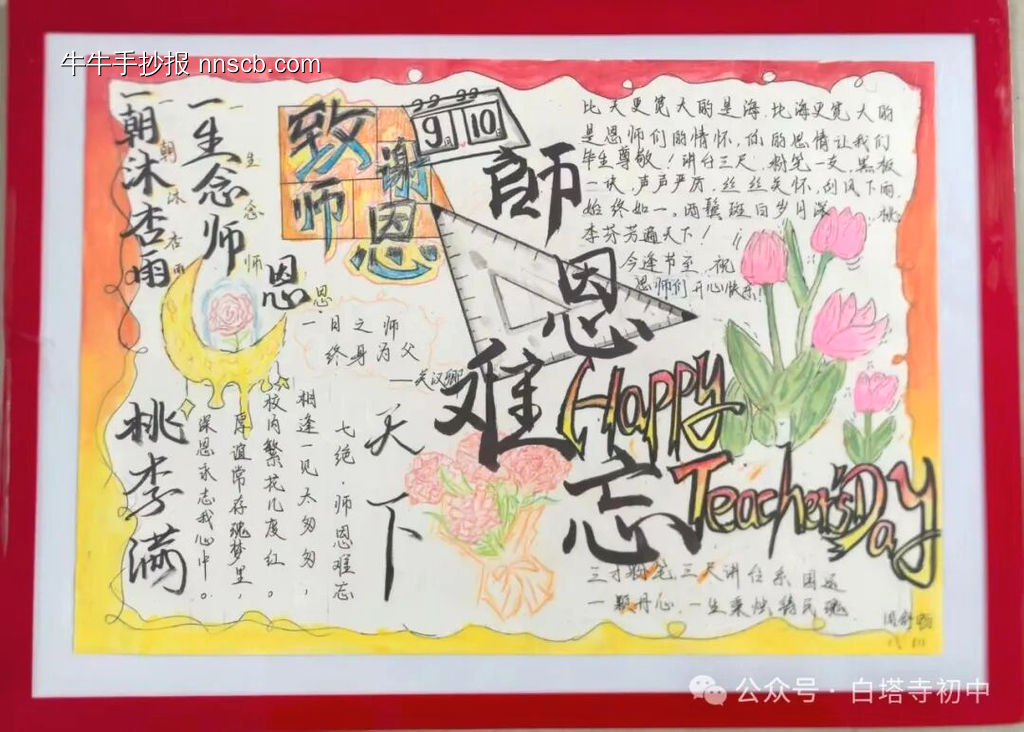 牛牛手抄报 nnscb.com
一朝沐杏雨
一生念师恩
一朝沐杏雨
一生念师恩
致师
谢恩
9月10日
師恩难忘
比天更宽大的是海，比海更宽大的
是恩师们的情怀，您的恩情让我们
毕生尊敬！讲台三尺，粉笔一支，黑板
一块，声声严厉，丝丝关怀，刮风下雨
始终如一。两鬓斑白岁月深，桃
李芬芳遍天下！
今逢节至，祝
恩师们开心快乐！
一日之师
终身为父
——关汉卿
桃李满
天下
七绝·师恩难忘
相逢一见太匆匆，
校内繁花几度红。
厚谊常存魂梦里，
深恩永志我心中。
Happy
Teacher's Day
三寸粉笔三尺讲台系国运
一颗丹心，一生秉烛铸民魂
公众号·白塔寺初中